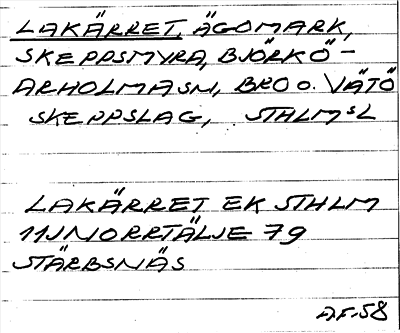 LAKÄRRET, ÄGOMARK,
SKEPPSMYRA, BJÖRKÖ-
ARHOLMASN, BRO o. VÄTÖ
SKEPPSLAG, STHLMSL
LAKÄRRET EK STHLM
11J NORRTÄLJE 79
STÄRBSNÄS
AF.58